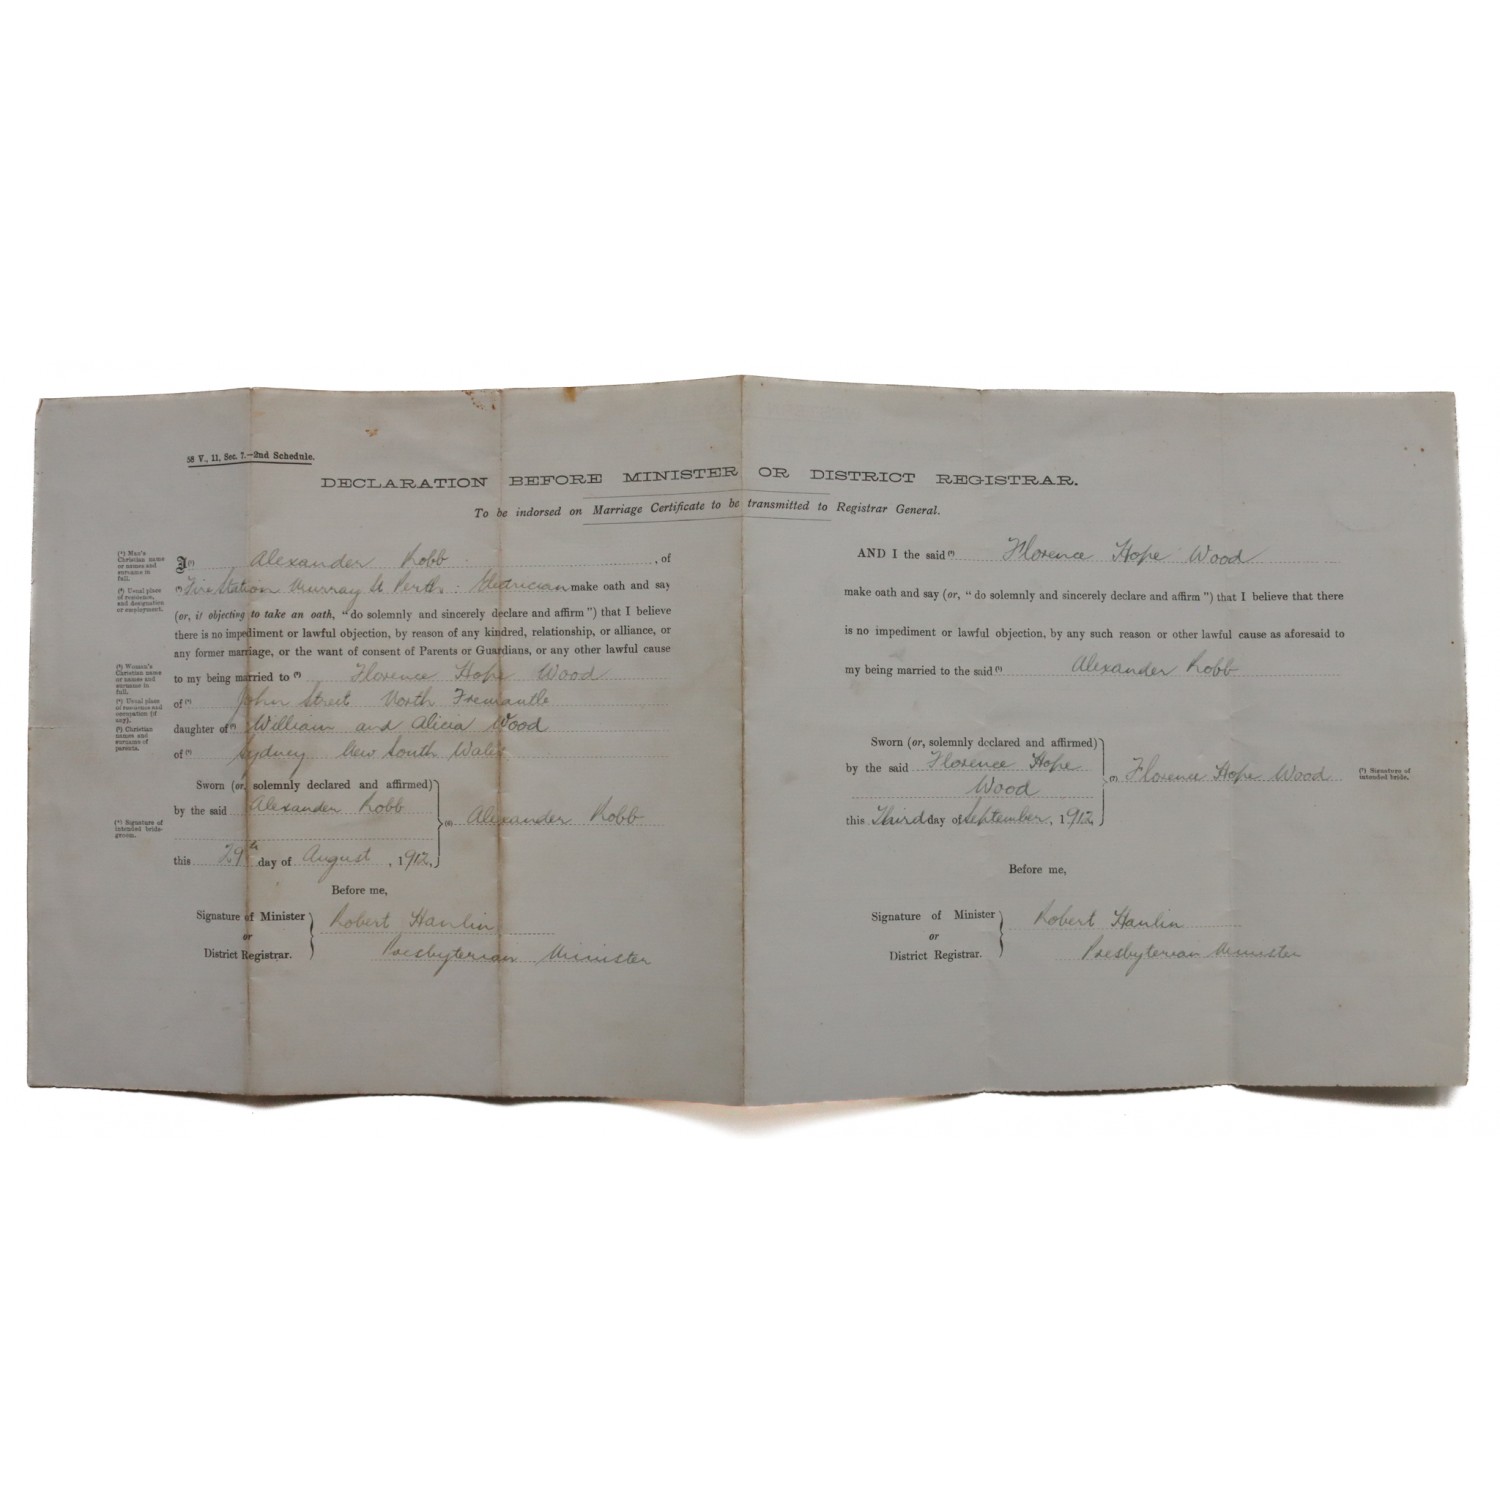 58 V., 11, Sec. 7.—2nd Schedule.
DECLARATION BEFORE MINISTER OR DISTRICT REGISTRAR.
To be indorsed on Marriage Certificate to be transmitted to Registrar General.
(¹) Man's
Christian name
or names and
surname in
full.
(²) Usual place
of residence,
and designation
or employment.
(³) Woman's
Christian name
or names and
surname in
full.
(⁴) Usual place
of residence and
occupation (if
any).
(⁵) Christian
names and
surname of
parents.
(⁶) Signature of
intended bride-
groom.
I (¹) Alexander Robb, of
(²) Fire Station Murray St Perth: Electrician make oath and say
(or, if objecting to take an oath, "do solemnly and sincerely declare and affirm") that I believe
there is no impediment or lawful objection, by reason of any kindred, relationship, or alliance, or
any former marriage, or the want of consent of Parents or Guardians, or any other lawful cause
to my being married to (³) Florence Hope Wood
of (⁴) John Street North Fremantle
daughter of (⁵) William and Alicia Wood
of Sydney New South Wales
Sworn (or, solemnly declared and affirmed)
by the said Alexander Robb
(⁶) Alexander Robb
this 29th day of August, 1912,
Before me,
Signature of Minister
or
District Registrar.
Robert Hanlin
Presbyterian Minister
AND I the said Florence Hope Wood
make oath and say (or, "do solemnly and sincerely declare and affirm") that I believe that there
is no impediment or lawful objection, by any such reason or other lawful cause as aforesaid to
my being married to the said (¹) Alexander Robb
Sworn (or, solemnly declared and affirmed)
by the said Florence Hope
Wood
(⁷) Florence Hope Wood
(⁷) Signature of
intended bride.
this Third day of September, 1912,
Before me,
Signature of Minister
or
District Registrar.
Robert Hanlin
Presbyterian Minister